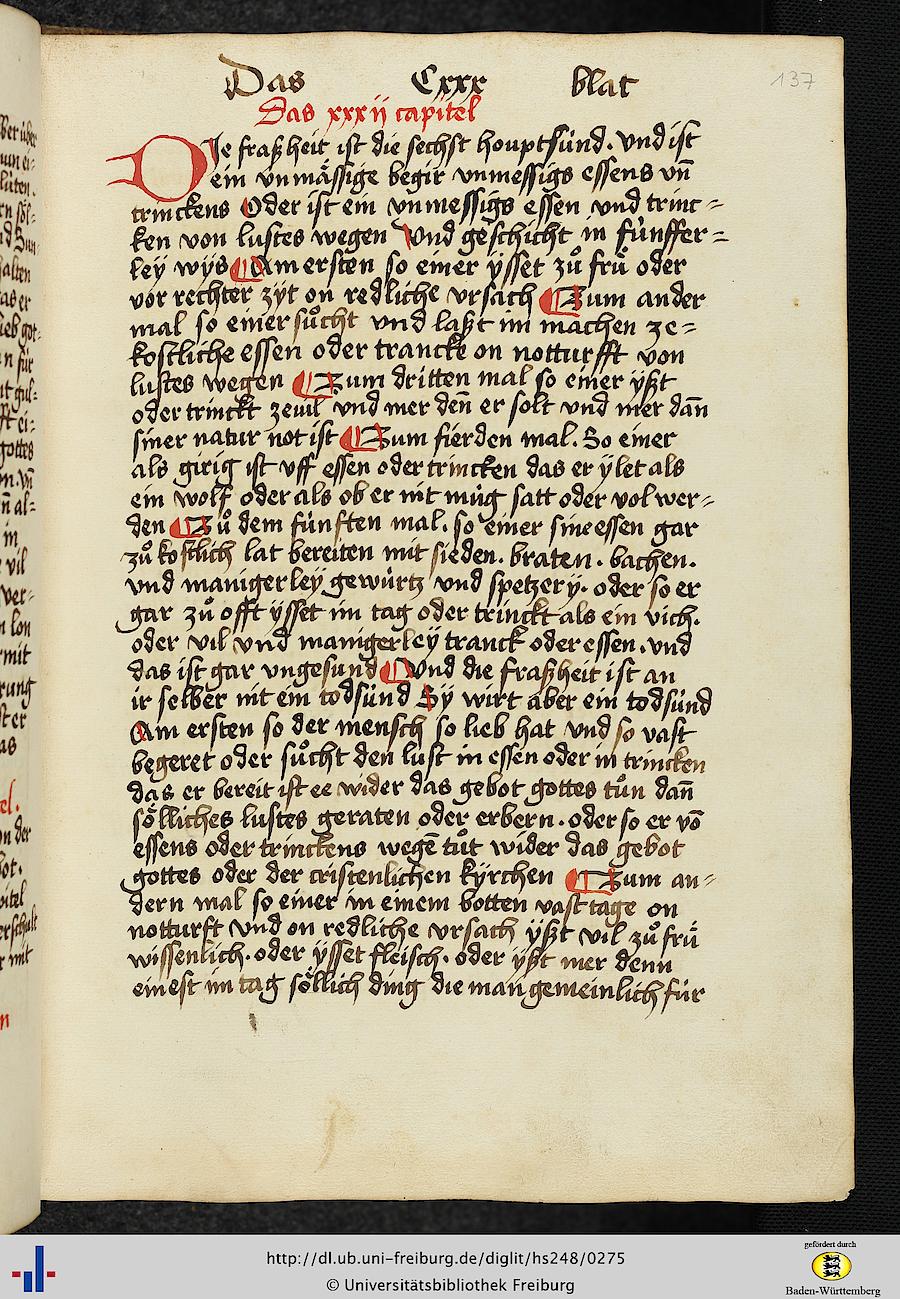 Das Cxxx blat
137
Das xxxii capitel
DIe fraßheit ist die sechst houptsünd. vnd ist
ein vnmässige begir vnmessigs essens vn̄
trinckens Oder ist ein vnmessigs essen vnd trinc-
ken von lustes wegen Vnd geschicht in fünffer-
ley wys Am ersten so einer ÿsset zů frů oder
vor rechter zyt on redliche vrsach Zum ander
mal so einer sůcht vnd laßt im machen ze-
kostliche essen oder trancke on notturfft von
lustes wegen Zum dritten mal so einer ÿßt
oder trinckt zeuil vnd mer den̄ er solt vnd mer dan̄
siner natur not ist Zum fierden mal. So einer
als girig ist vff essen oder trincken das er ÿlet als
ein wolf oder als ob er nit müg satt oder vol wer-
den Zů dem fünften mal. so einer sine essen gar
zů kostlich lat bereiten mit sieden. braten. bachen.
vnd manigerley gewürtz vnd spetzery. oder so er
gar zů offt ÿsset im tag oder trinckt als ein vich.
oder vil vnd manigerleÿ tranck oder essen. vnd
das ist gar vngesund Vnd die fraßheit ist an
ir selber nit ein todsünd Sÿ wirt aber ein todsünd
Am ersten so der mensch so lieb hat vnd so vast
begeret oder sůcht den lust in essen oder in trincken
das er bereit ist ee wider das gebot gottes tůn dan̄
sölliches lustes geraten oder erbern. oder so er vō
essens oder trinckens wegē tůt wider das gebot
gottes oder der cristenlichen kÿrchen Zum an-
dern mal so einer in einem botten vasttage on
notturft vnd on redliche vrsach ÿßt vil zů frů
wissenlich. oder ÿsset fleisch. oder ÿßt mer denn
einest im tag söllich ding die man gemeinlich für
http://dl.ub.uni-freiburg.de/diglit/hs248/0275
© Universitätsbibliothek Freiburg
gefördert durch
Baden-Württemberg